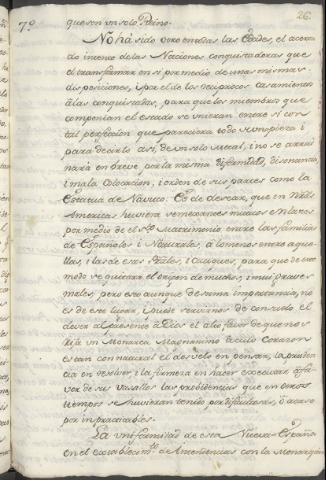 26.
7º
que son un solo Reino.
No há sido otro en todas las Edades, el acer
do interno delas Naciones conquistadoras que
el transformar en sí por medio de unas mismas
disposiciones, i por el de los reciprocos casamientos
â las conquistadas, para que los miembros que
componian el estado se unieran entre sí con
tal perfeccion que pareciera todo una pieza i
para decirlo asi, de un solo metal, i no se arrui
nará en breve por la misma disonancia,
i mala colocacion, i orden de sus partes como la
Estatua de Nabuco. Es de desear, que en
America huviera semejantes mutuos enlazes
por medio de el Sto. Matrimonio entre las familias
de Españoles i Naturales, â lo menos entre aque
llas, i las de sus Reales, i Caciques, para que de este
modo se quitara el origen de muchos, i mui graves
males, pero esto aunque de suma importancia, no
es de este lugar, i puede servirnos de consuelo el
deber al presente â Dios el alto favor de que nos
rija un Monarca Magnanimo â cuio corazon
estan connatural el desvelo en pensar, la pruden
cia en resolver, i la firmeza en hacer executar â fa
vor de sus vasallos las providencias que en otros
tiempos se huvieran tenido por dificultosas, ô acaso
por impracticables.
La uniformidad de esta Nueva España
en el establecimto. de Intendencias con la Monarquia